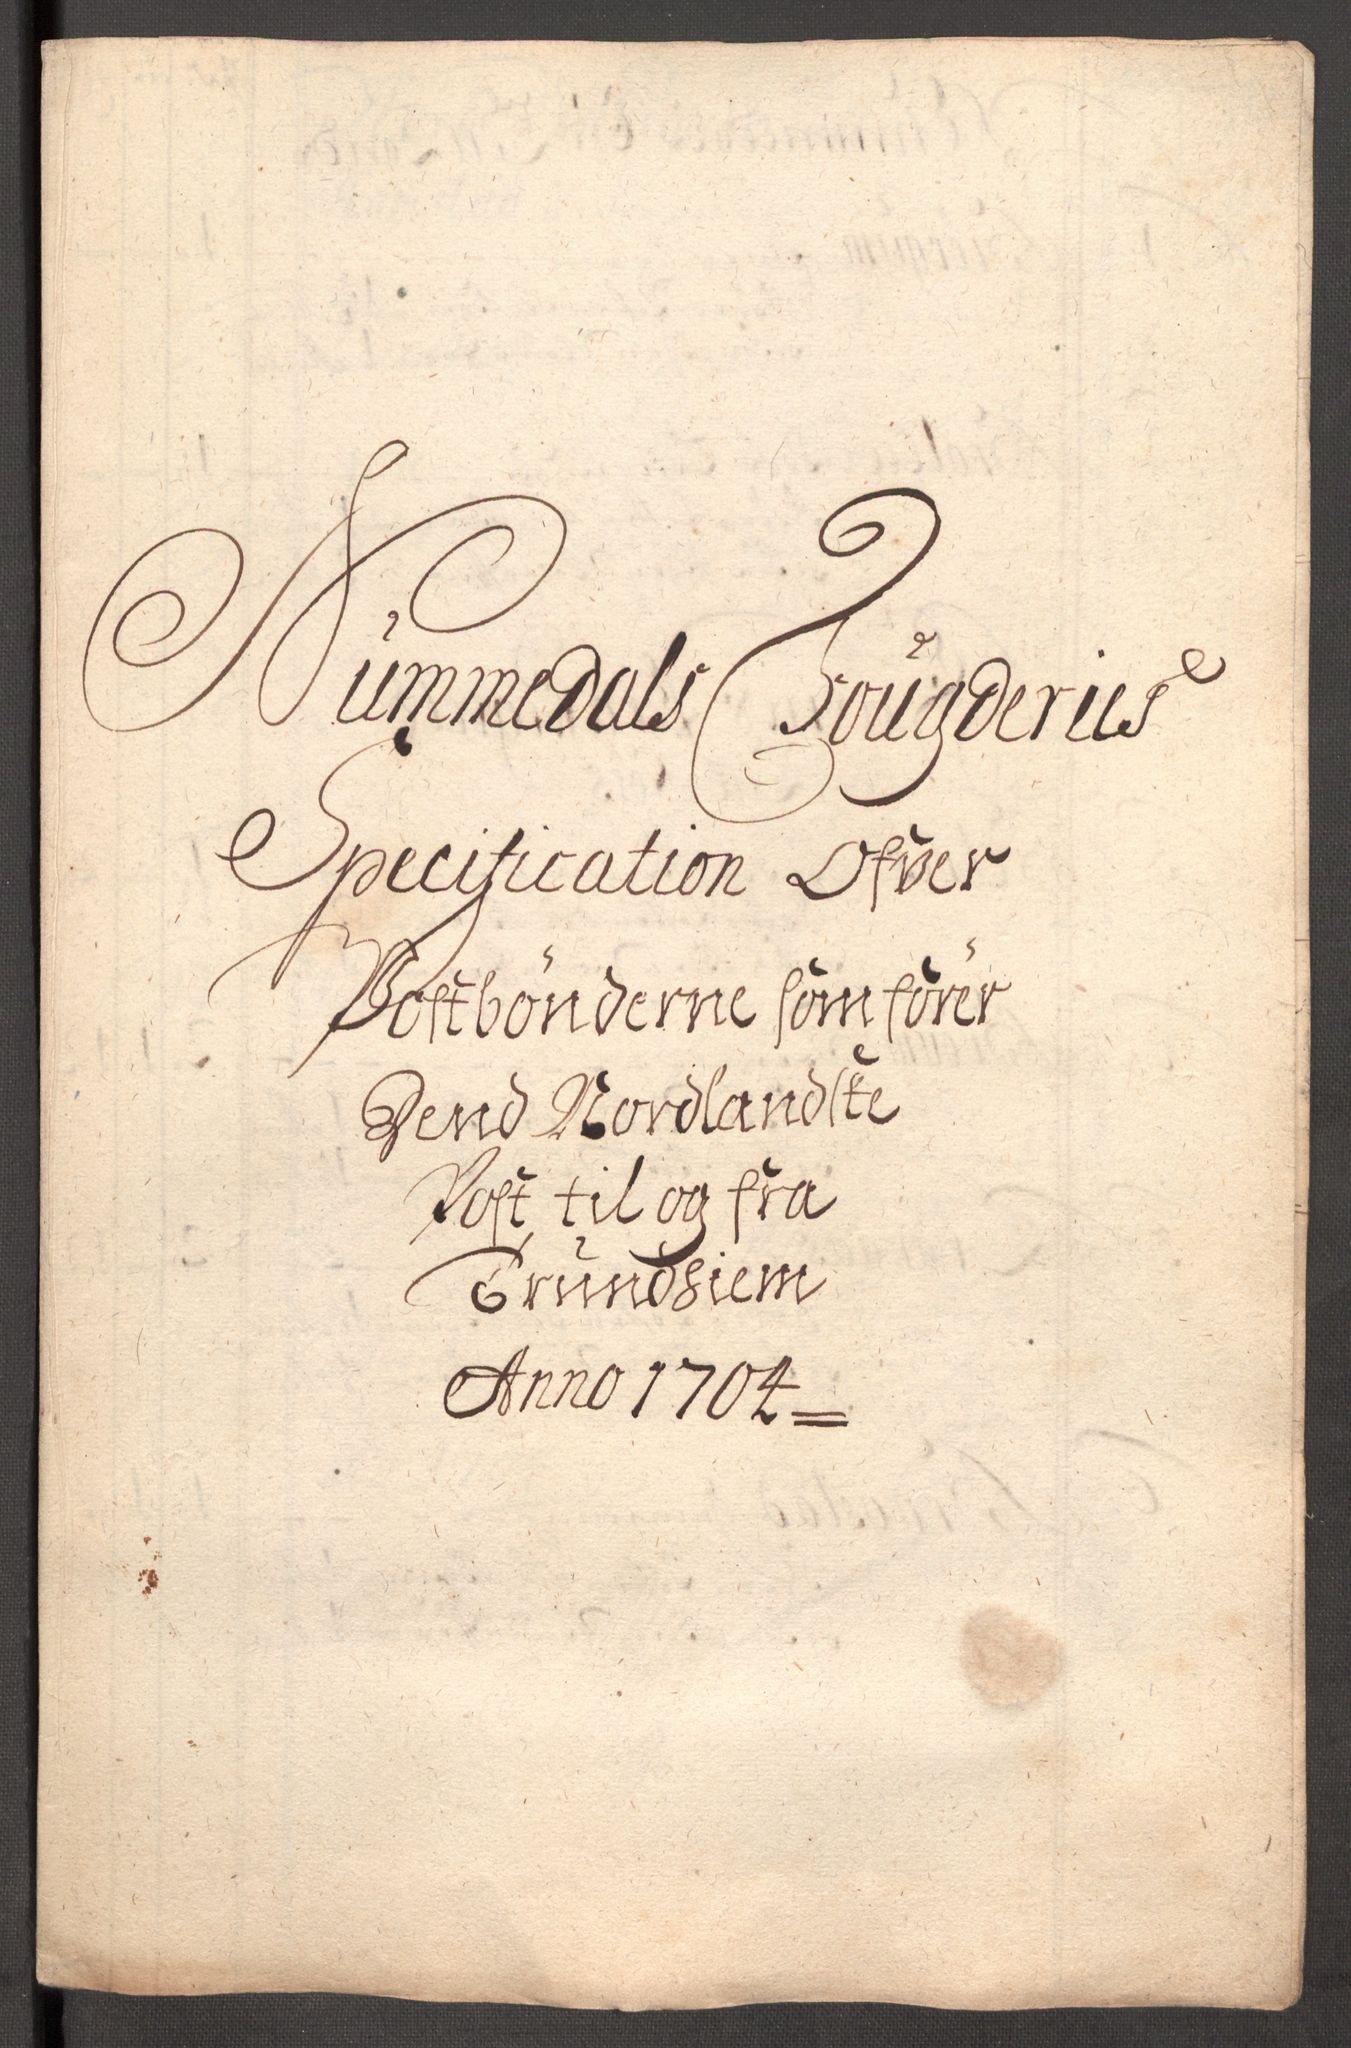 Nummedals Fougderies
Specification Ofver
Postbönderne som förer
Dend Nordlandske
Post til og fra
Trundhiem
Anno 1704